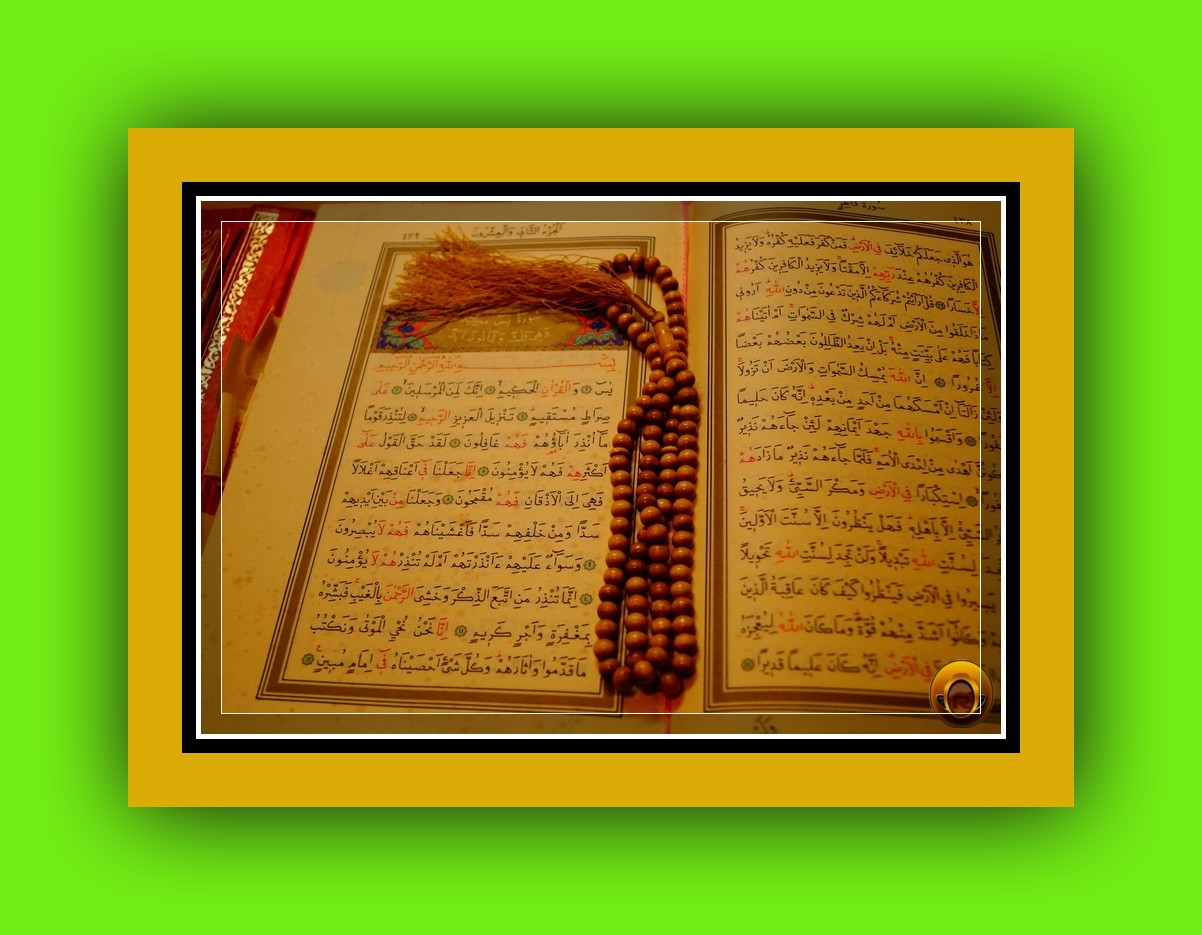 سورة فاطر
٤٣٨
هُوَ الَّذِى جَعَلَكُمْ خَلَآئِفَ فِى الْاَرْضِ فَمَنْ كَفَرَ فَعَلَيْهِ كُفْرُهُ وَلَا يَزِيدُ
الْكَافِرِينَ كُفْرُهُمْ عِنْدَ رَبِّهِمْ اِلَّا مَقْتًا وَلَا يَزِيدُ الْكَافِرِينَ كُفْرُهُمْ
اِلَّا خَسَارًا قُلْ اَرَاَيْتُمْ شُرَكَآءَكُمُ الَّذِينَ تَدْعُونَ مِنْ دُونِ اللّٰهِ اَرُونِى
مَاذَا خَلَقُوا مِنَ الْاَرْضِ اَمْ لَهُمْ شِرْكٌ فِى السَّمٰوَاتِ اَمْ اٰتَيْنَاهُمْ
كِتَابًا فَهُمْ عَلٰى بَيِّنَتٍ مِنْهُ بَلْ اِنْ يَعِدُ الظَّالِمُونَ بَعْضُهُمْ بَعْضًا
اِلَّا غُرُورًا اِنَّ اللّٰهَ يُمْسِكُ السَّمٰوَاتِ وَالْاَرْضَ اَنْ تَزُولَا
وَلَئِنْ زَالَتَا اِنْ اَمْسَكَهُمَا مِنْ اَحَدٍ مِنْ بَعْدِهِ اِنَّهُ كَانَ حَلِيمًا
غَفُورًا وَاَقْسَمُوا بِاللّٰهِ جَهْدَ اَيْمَانِهِمْ لَئِنْ جَآءَهُمْ نَذِيرٌ
لَيَكُونُنَّ اَهْدٰى مِنْ اِحْدَى الْاُمَمِ فَلَمَّا جَآءَهُمْ نَذِيرٌ مَا زَادَهُمْ
اِلَّا نُفُورًا اِسْتِكْبَارًا فِى الْاَرْضِ وَمَكْرَ السَّيِّئِ وَلَا يَحِيقُ
الْمَكْرُ السَّيِّئُ اِلَّا بِاَهْلِهِ فَهَلْ يَنْظُرُونَ اِلَّا سُنَّتَ الْاَوَّلِينَ
فَلَنْ تَجِدَ لِسُنَّتِ اللّٰهِ تَبْدِيلًا وَلَنْ تَجِدَ لِسُنَّتِ اللّٰهِ تَحْوِيلًا
اَوَلَمْ يَسِيرُوا فِى الْاَرْضِ فَيَنْظُرُوا كَيْفَ كَانَ عَاقِبَةُ الَّذِينَ
وَكَانُوا اَشَدَّ مِنْهُمْ قُوَّةً وَمَا كَانَ اللّٰهُ لِيُعْجِزَهُ
فِى الْاَرْضِ اِنَّهُ كَانَ عَلِيمًا قَدِيرًا
الجزء الثانى والعشرون
بِسْمِ اللّٰهِ الرَّحْمٰنِ الرَّحِيمِ
يٰسٓ وَالْقُرْاٰنِ الْحَكِيمِ اِنَّكَ لَمِنَ الْمُرْسَلِينَ عَلٰى
صِرَاطٍ مُسْتَقِيمٍ تَنْزِيلَ الْعَزِيزِ الرَّحِيمِ لِتُنْذِرَ قَوْمًا
مَآ اُنْذِرَ اٰبَآؤُهُمْ فَهُمْ غَافِلُونَ لَقَدْ حَقَّ الْقَوْلُ عَلٰى
اَكْثَرِهِمْ فَهُمْ لَا يُؤْمِنُونَ اِنَّا جَعَلْنَا فِى اَعْنَاقِهِمْ اَغْلَالًا
فَهِىَ اِلَى الْاَذْقَانِ فَهُمْ مُقْمَحُونَ وَجَعَلْنَا مِنْ بَيْنِ اَيْدِيهِمْ
سَدًّا وَمِنْ خَلْفِهِمْ سَدًّا فَاَغْشَيْنَاهُمْ فَهُمْ لَا يُبْصِرُونَ
وَسَوَآءٌ عَلَيْهِمْ ءَاَنْذَرْتَهُمْ اَمْ لَمْ تُنْذِرْهُمْ لَا يُؤْمِنُونَ
اِنَّمَا تُنْذِرُ مَنِ اتَّبَعَ الذِّكْرَ وَخَشِىَ الرَّحْمٰنَ بِالْغَيْبِ فَبَشِّرْهُ
بِمَغْفِرَةٍ وَاَجْرٍ كَرِيمٍ اِنَّا نَحْنُ نُحْىِ الْمَوْتٰى وَنَكْتُبُ
مَا قَدَّمُوا وَاٰثَارَهُمْ وَكُلَّ شَىْءٍ اَحْصَيْنَاهُ فِى اِمَامٍ مُبِينٍ